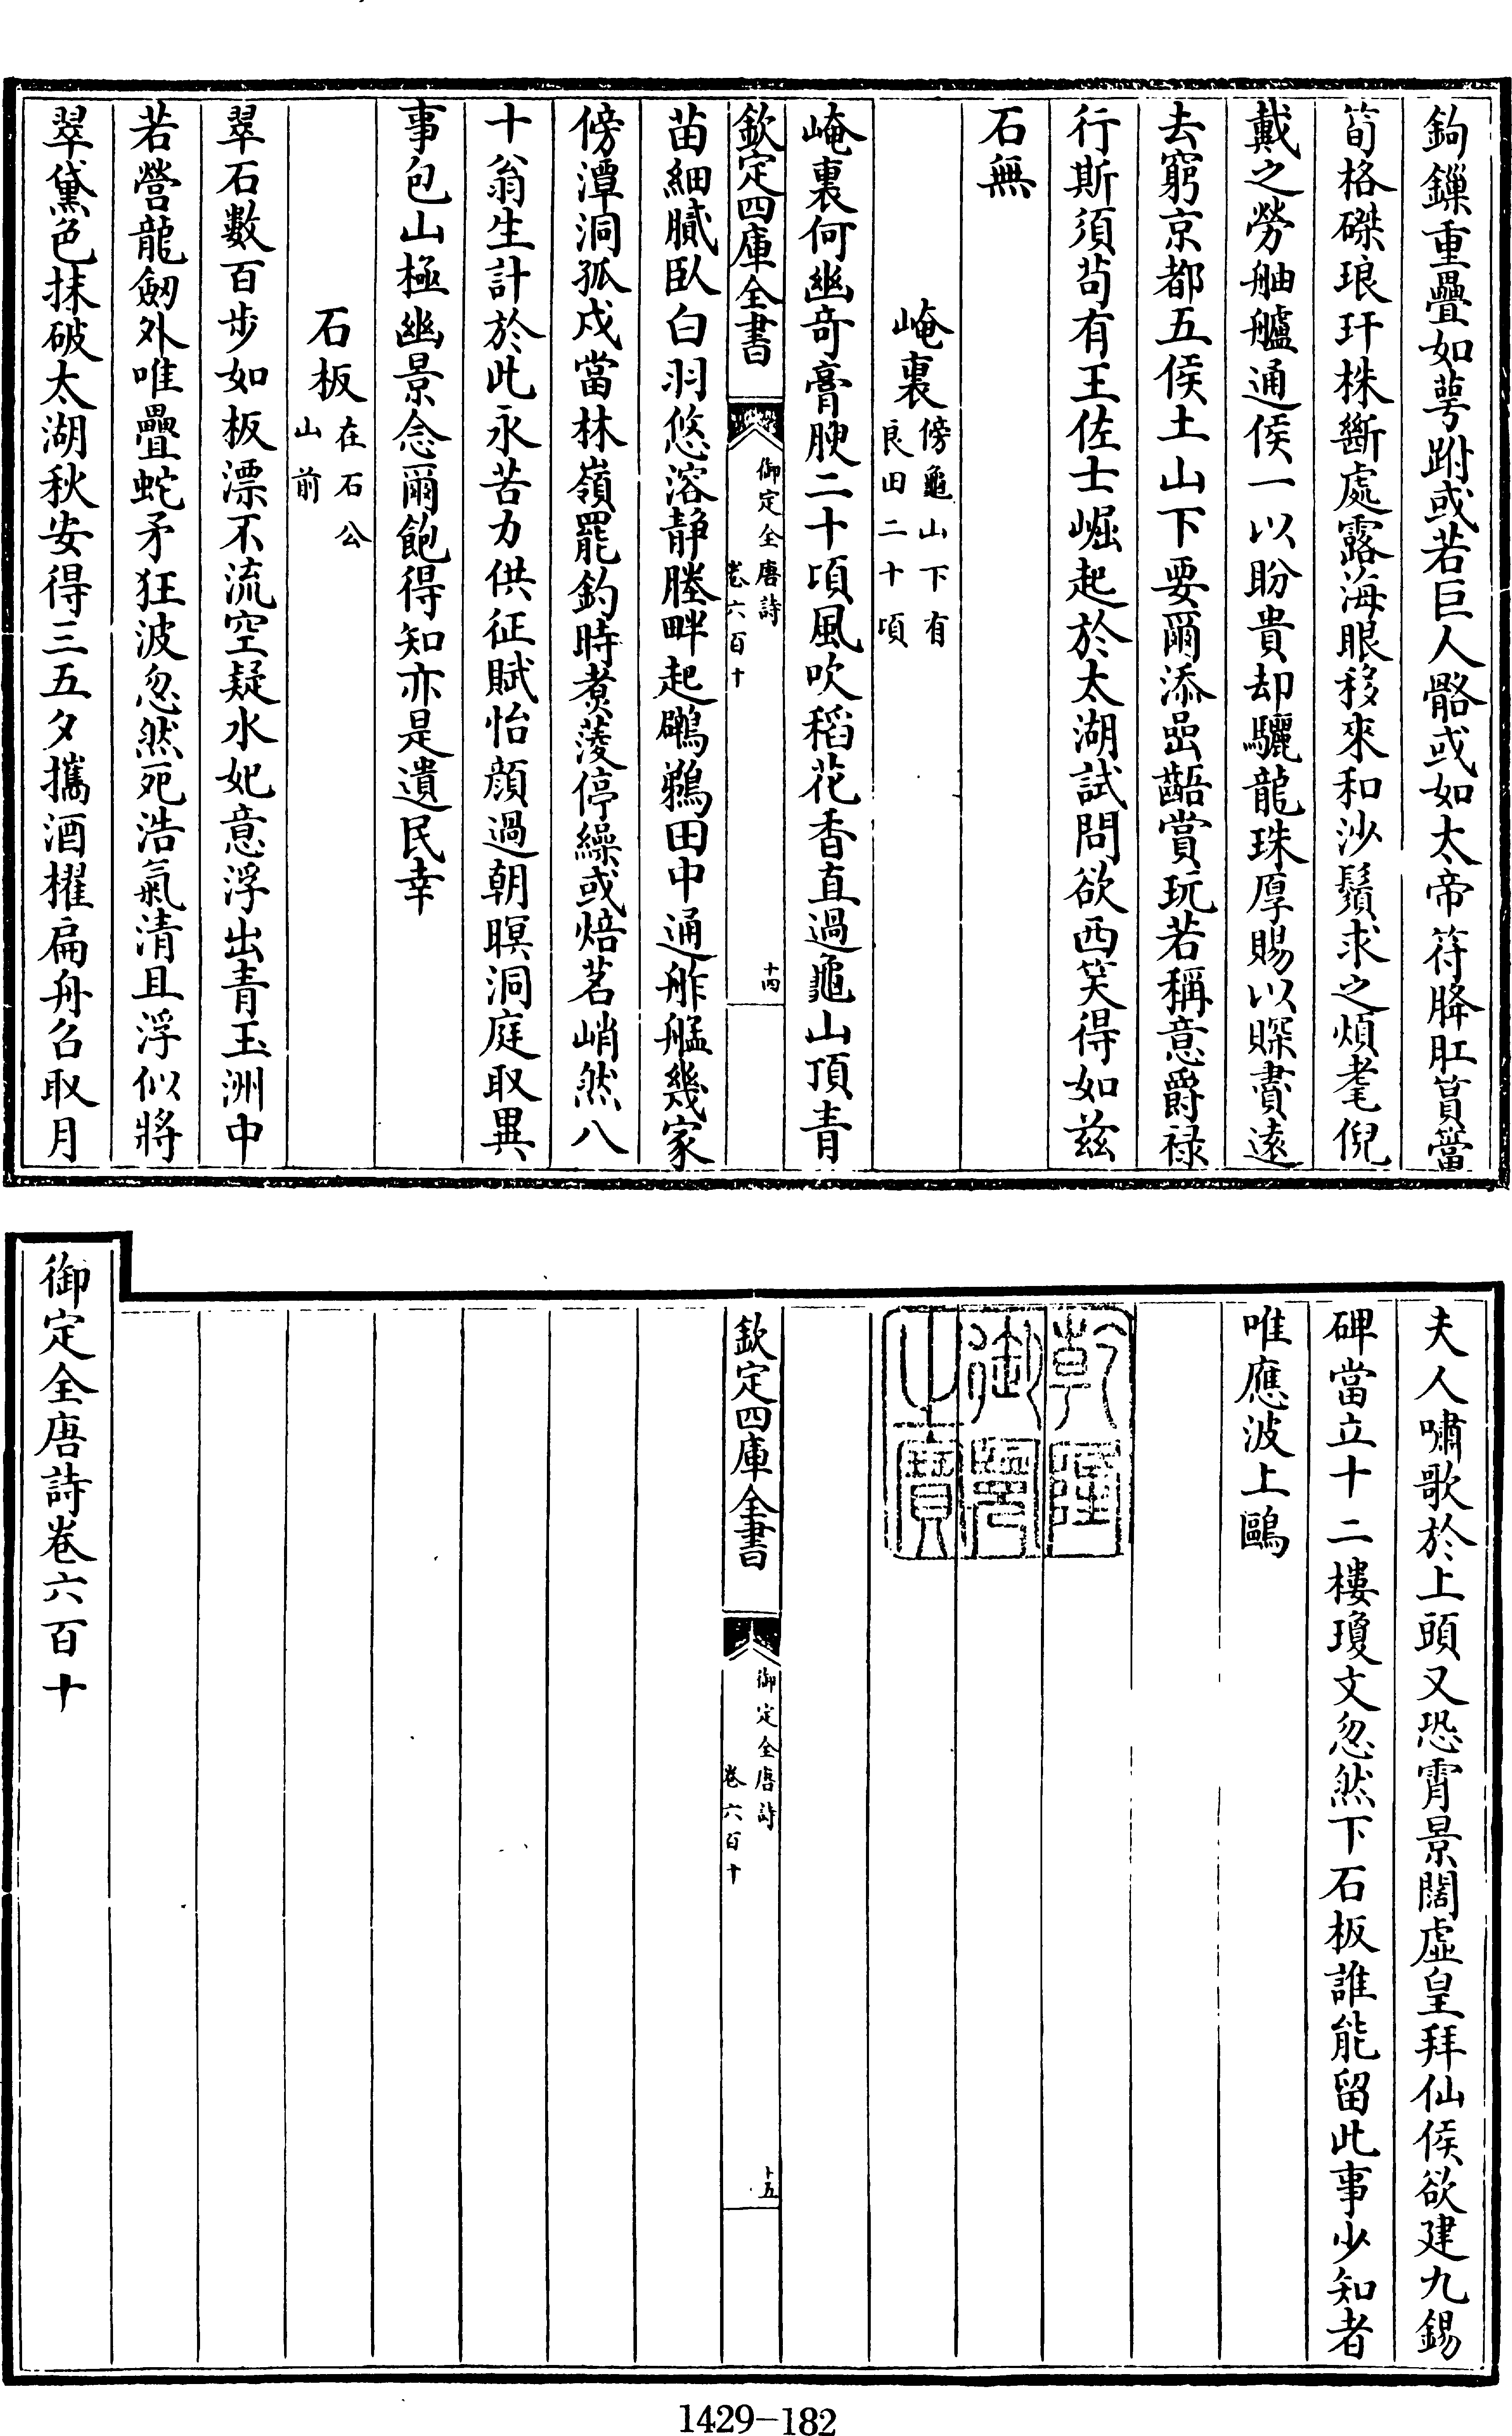 鉤鏁重疊如萼跗或若巨人骼或如太帝符胮肛篔簹
筍格磔琅玕株斷處露海眼移來和沙鬚求之煩耄倪
戴之勞舳艫通侯一以盼貴却驪龍珠厚賜以賝賮遠
去窮京都五侯土山下要爾添嵒齬賞玩若稱意爵禄
行斯須茍有王佐士崛起於太湖試問欲西笑得如兹
石無
崦裏傍龜山下有良田二十頃
崦裏何幽竒膏腴二十頃風吹稻花香直過龜山頂青
欽定四庫全書 御定全唐詩 卷六百十 十四
苗細膩臥白羽悠溶静塍畔起鷿鵜田中通舴艋幾家
傍潭洞孤戍當林嶺罷釣時煮菱停繰或焙茗峭然八
十翁生計於此永苦力供征賦怡顔過朝暝洞庭取異
事包山極幽景念爾飽得知亦是遺民幸
石板在石公山前
翠石數百步如板漂不流空疑水妃意浮出青玉洲中
若瑩龍劒外唯疊蛇矛狂波忽然死浩氣清且浮似將
翠黛色抹破太湖秋安得三五夕攜酒櫂扁舟召取月
夫人嘯歌於上頭又恐霄景闊虛皇拜仙侯欲建九錫
碑當立十二樓瓊文忽然下石板誰能留此事少知者
唯應波上鷗
乾隆御覽之寶
欽定四庫全書 御定全唐詩 卷六百十 十五
御定全唐詩卷六百十
1429-182